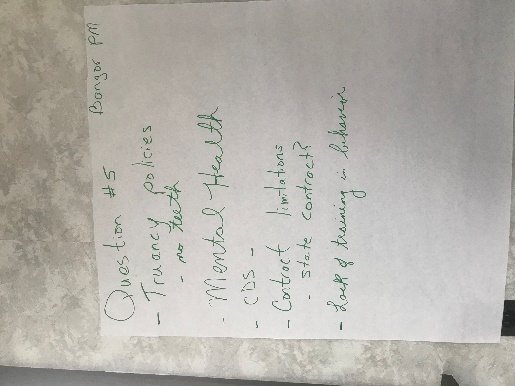 Question #5 Bangor PM
- Truancy policies
- no teeth
- Mental Health
- CDS -
- Contract limitations
- State contract?
- Lack of training in behavior